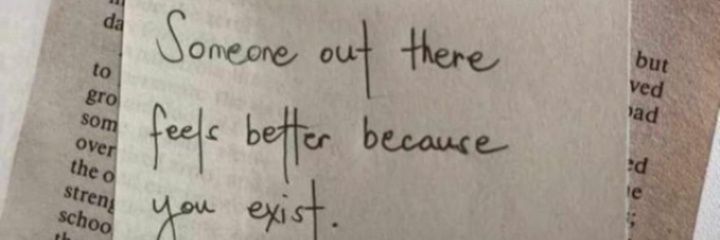 da
Someone out there
but
to
ved
gro
feels better because
som
over
the o
ed
you exist.
schoo